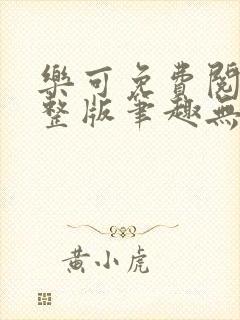 樂可免費閱
整版筆趣無
黃小虎